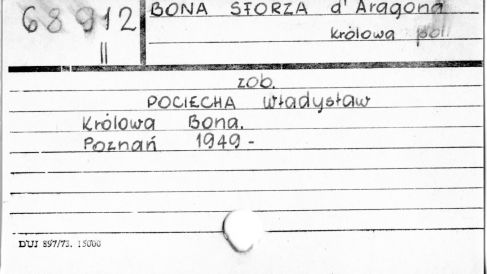 68912 BONA SFORZA d'Aragona
II królowa pol.
zob.
POCIECHA Władysław
Królowa Bona.
Poznań 1949 -
DUJ 897/73. 15000